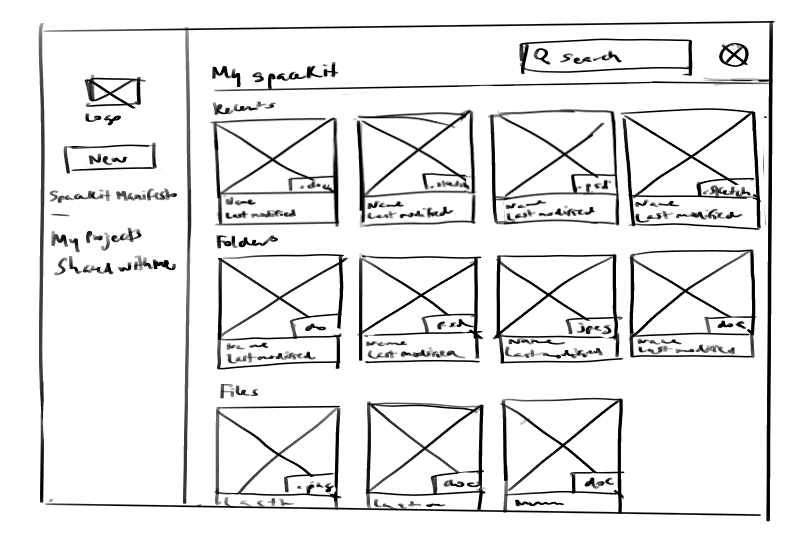 My spackit
Q Search
Logo
New
Spackit Manifesto
My Projects
Shared with me
Recents
.doc
Name
Last modified
.sketch
Name
Last modified
.psd
Name
Last modified
.sketch
Name
Last modified
Folders
do
Name
Last modified
psd
Name
Last modified
jpeg
Name
Last modified
doc
Name
Last modified
Files
.png
doc
doc